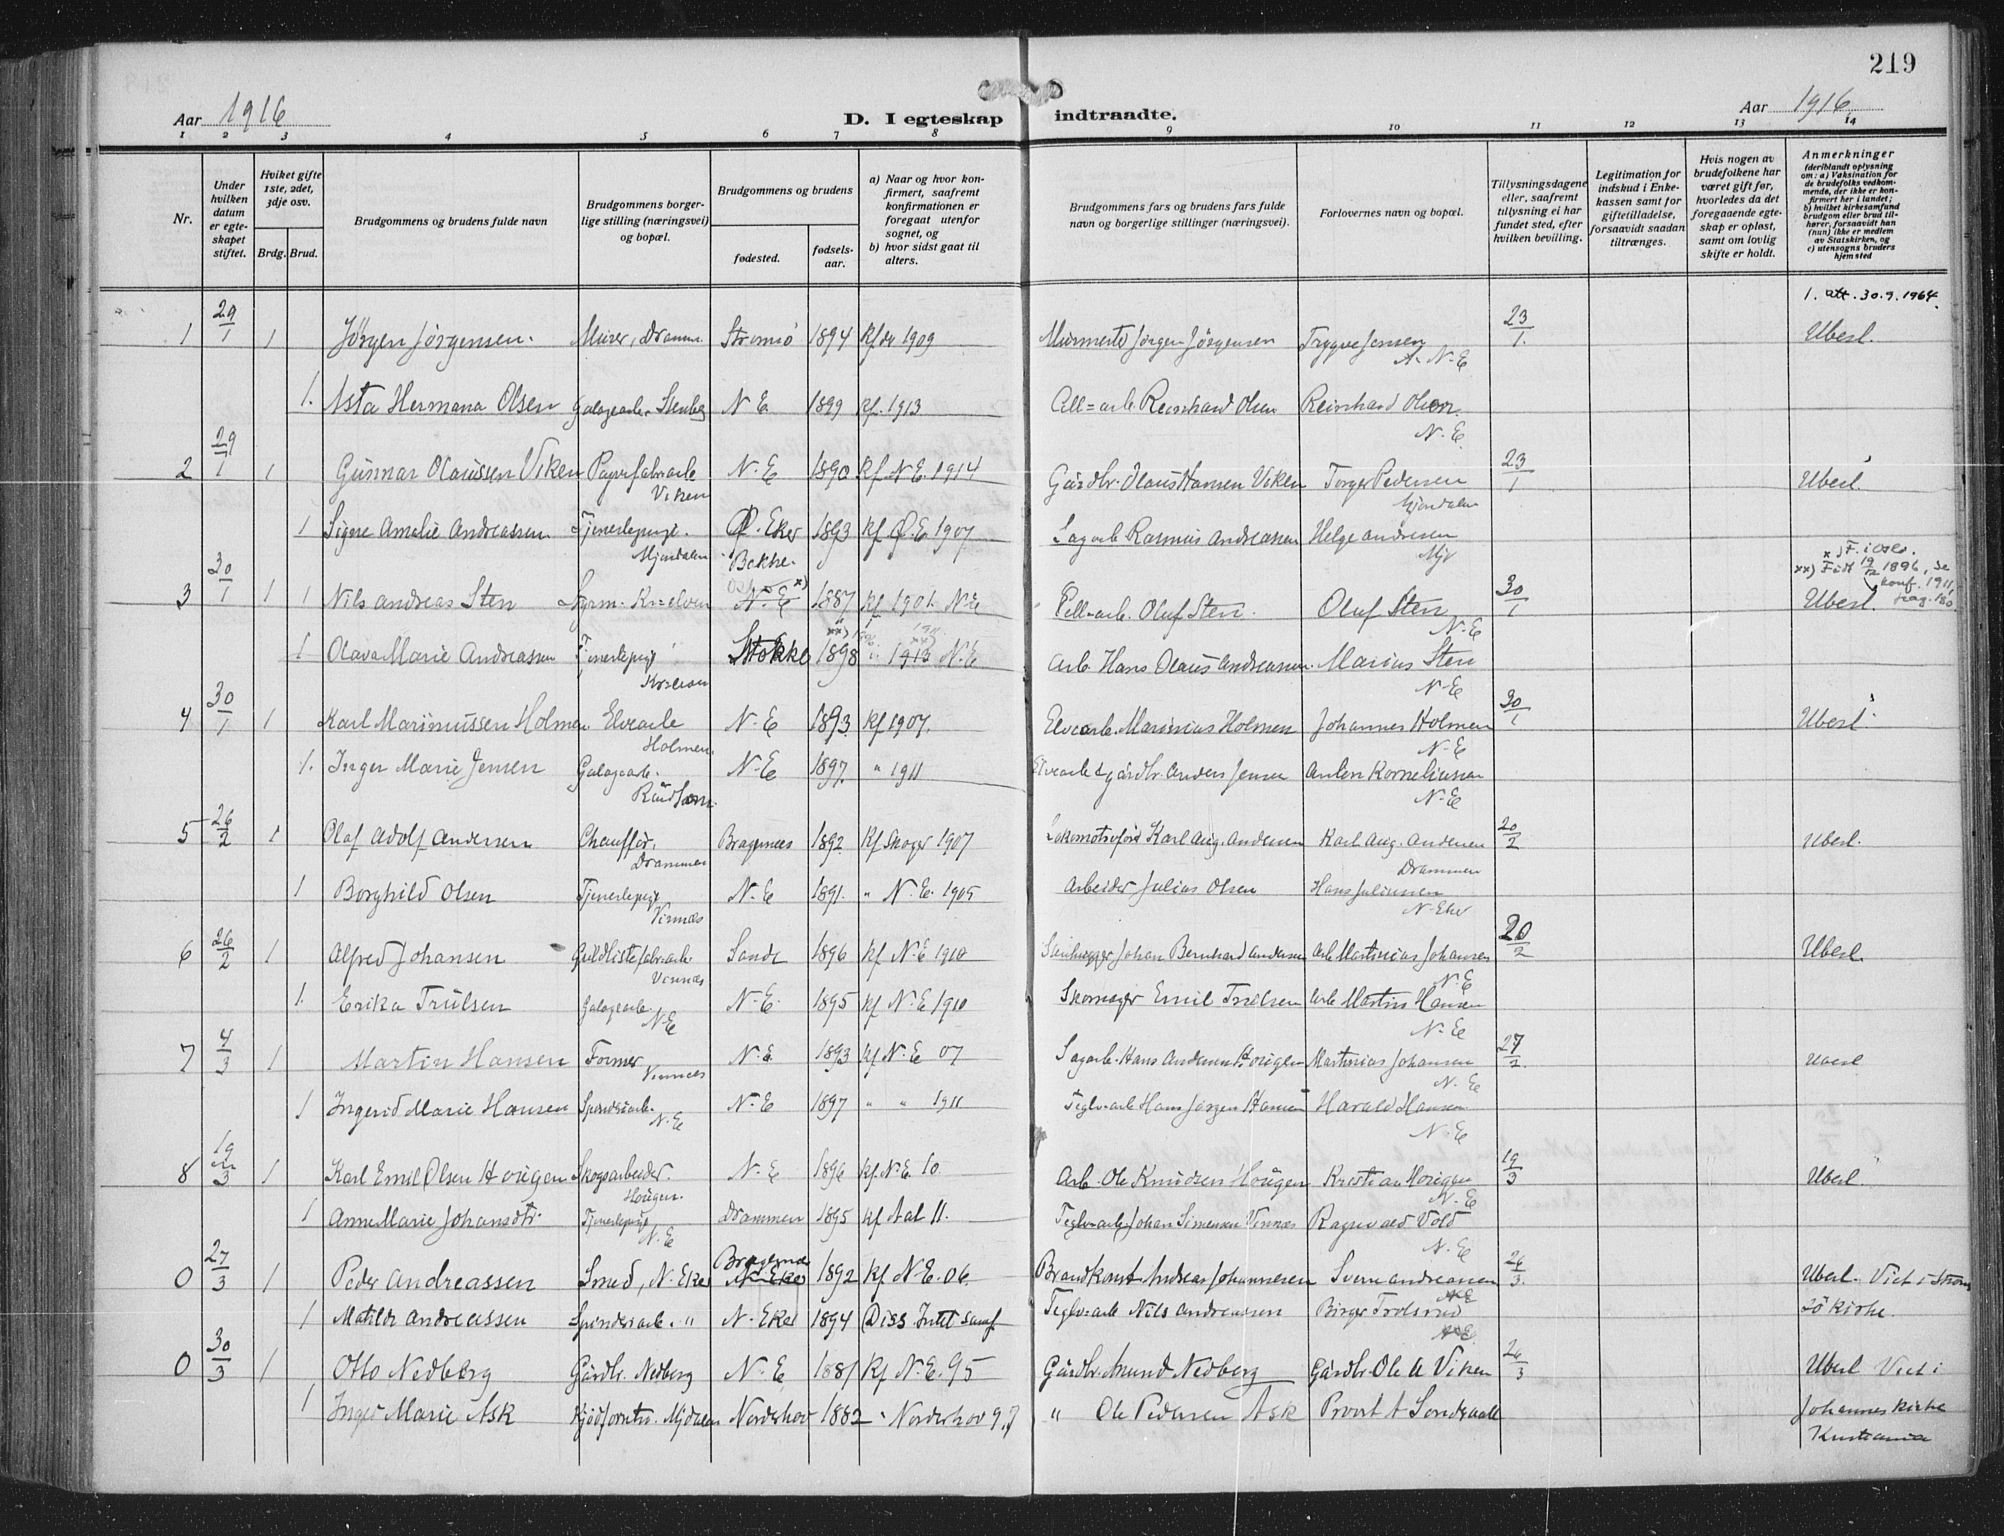 219
Aar 1916
D. I egteskap indtraadte.
Aar 1916
1 2 3 4 5 6 7 8 9 10 11 12 13 14
Nr.
Under hvilken datum er egteskapet stiftet.
Hviket gifte 1ste, 2det, 3dje osv.
Brdg. Brud.
Brudgommens og brudens fulde navn
Brudgommens borgerlige stilling (næringsvei) og bopæl.
Brudgommens og brudens
fødested.
fødselsaar.
a) Naar og hvor konfirmert, saafremt konfirmationen er foregaat utenfor sognet, og
b) hvor sidst gaat til alters.
Brudgommens fars og brudens fars fulde navn og borgerlige stillinger (næringsvei).
Forlovernes navn og bopæl.
Tillysningsdagene eller, saafremt tillysning ei har fundet sted, efter hvilken bevilling.
Legitimation for indskud i Enkekassen samt for giftetilladelse, forsaavidt saadan tiltrænges.
Hvis nogen av brudefolkene har været gift før, hvorledes da det foregaaende egteskap er opløst, samt om lovlig skifte er holdt.
Anmerkninger
(deriblandt oplysning om: a) Vaksination for de brudefolks vedkommende, der ikke er konfirmert her i landet; b) hvilket kirkesamfund brudgom eller brud tilhører, forsaavidt han (hun) ikke er medlem av Statskirken, og c) utensogns bruders hjemsted
1. att. 30.9.1964.
1 29/1 1 Jørgen Jørgensen. Murer, Dramm. Strømsø 1894 Kf 1909 Jørgen Jørgensen Trygve Jensen N-E 23/1. Uberl.
1. Asta Hermana Olsen Galogearb. Stenberg N E. 1899 Kf. 1913 Cell=arb Reinhard Olsen Reinhard Olsen. N.E.
2 29/1 1 Gunnar Olaussen Viken Papirfabrarb Viken N.E 1890 Kf N.E. 1914 Gårdbr. Olaus Hansen Viken Torger Pedersen Mjøndalen 23/1 Uberl.
1 Signe Amalie Andreassen Tjenestepige. Mjøndalen Ø. Eker 1893 Kf Ø.E 1907 Sagarb Rasmus Andreassen Helge Andresen Mjø
3 30/1 1 1 Nils Andreas Sten N.E x) 1887 Kf 1901. N.E Cell=arb. Oluf Sten. Oluf Sten N.E 30/1 Uberl.
x) F. i Oslo.
xx) Født 19/12 1896, se konf. 1911, pag. 180.
1 Olava Marie Andreassen Tjenestepige Stokke 1898 1913 N.E Arb Hans Olaus Andreassen. Marius Sten N-E
4 30/1 1 Karl Marinussen Holmen Elvearb Holmen. N-E 1893. Kf 1907. Elvearb. Marinius Holmen Johannes Holmen N-E 30/1 Uberl.
1. Inger Marie Jensen Galogearb. N-E 1897. " 1911 Elvearb & gårdbr. Anders Jensen Anton Korneliussen N-E
5 26/2 1 Olaf Adolf Andersen Chauffør, Drammen Bragernes 1892. Kf Skoger 1907 Karl Aug. Andersen Karl Aug. Andersen Drammen 20/2 Uberl.
1 Borghild Olsen Tjenestepige Vinnæs N.E 1891. " N.E. 1905 Arbeider Julius Olsen Hans Juliussen N-Eker
6 26/2 1 Alfred Johansen Guldlistefabrarb. Vinnæs Sande 1896 Kf N.E 1910 Johan Bernhard Andersen Arb Martinius Johansen N.E 20/2 Uberl.
1. Erika Trulsen Galogearb. N.E N.E. 1895 Kf N.E 1910 Skomager Emil Trulsen Arb Martin Hansen N.E
7 4/3 1 Martin Hansen Former Vinnæs N.E 1893 Kf N.E 07 Sagarb. Hans Andersen Hougen Martinius Johansen N.E 27/2. Uberl
1 Ingerid Marie Hansen Spinderiarb. N.E N.E 1897 " " 1911 Teglv=arb Hans Jørgen Hansen Harald Hansen N.E
8 19/3 1 Karl Emil Olsen Hougen Skogsarbeider. Hougen. N.E 1896 Kf. N.E. 10. Arb. Ole Knudsen Hougen Kristian Hougen N.E 19/3 Uberl.
1 Anne Marie Johansdtr. Tjenestepige N.E Drammen 1895 Kf Aal 11. Teglv=arb Johan Simensen Vinnæs Ragnvald Vold N.E
0 27/3 1 Peder Andreassen N. Eker Bragernæs N. Eker 1892 Kf N.E. 06. Andreas Johannesen Sverre Andreassen N.E 26/3. Uberl. Viet i Strøm
1 Matilde Andreassen Spinderiarb. " N. Eker 1894 (Diss Intet samf Teglv=arb Nils Andreassen Birger Trolsrud N.E sø kirke.
0 30/3 1 Otto Nedberg Gårdbr. Nedberg N.E 1881 Kf N.E. 95 Gårdbr. Amund Nedberg Gårdbr. Ole A Viken 26/3 Uberl Viet i
1 Inger Marie Ask Mjdalen Norderhov 1882 " Norderhov 97 " Ole Pedersen Ask Provst A Sandsdalen Johannes kirke
Kristiania